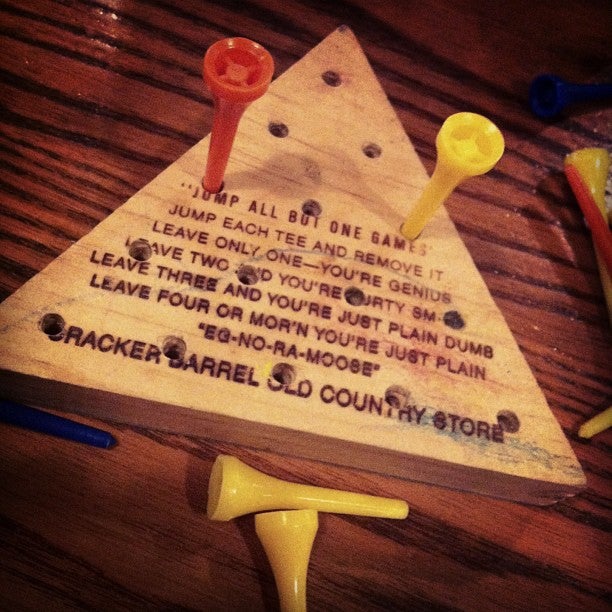 "JUMP ALL BUT ONE GAME"
JUMP EACH TEE AND REMOVE IT
LEAVE ONLY ONE—YOU'RE GENIUS
LEAVE TWO AND YOU'RE PURTY SM
LEAVE THREE AND YOU'RE JUST PLAIN DUMB
LEAVE FOUR OR MOR'N YOU'RE JUST PLAIN
"EG-NO-RA-MOOSE"
CRACKER BARREL OLD COUNTRY STORE